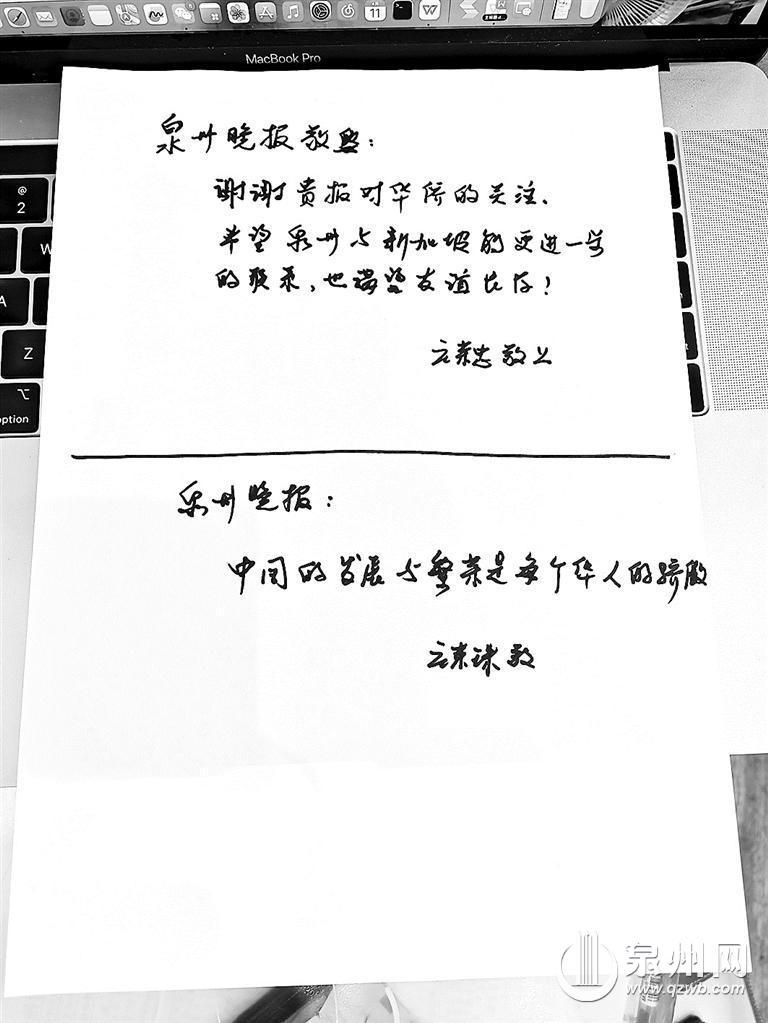 MacBook Pro
11
@
2
W
A
Z
option
泉州晚报敬:
谢谢贵报对华侨的关注、
希望泉州与新加坡能更进一步
的联系,也渴望友谊长存!
敬上
泉州晚报:
中国的发展与繁荣是每个华人的骄傲
敬
泉州网
www.qzwb.com